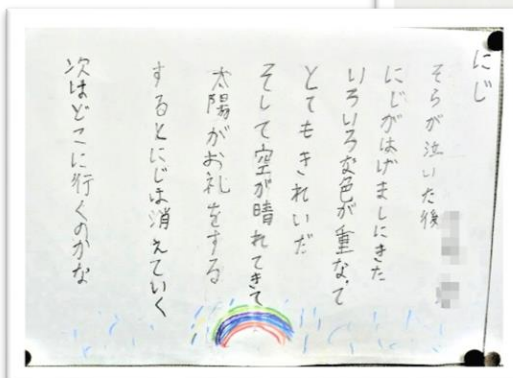 にじ
そらが泣いた後
にじがはげましにきた
いろいろな色が重なって
とてもきれいだ
そして空が晴れてきて
太陽がお礼をする
するとにじは消えていく
次はどこに行くのかな